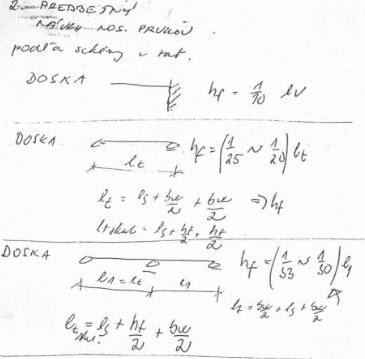 2. PREDBEŽNÝ
NÁVRH NOS. PRVKOV
podľa schémy v tab.
DOSKA
hf = 1/10 lv
DOSKA
lt
hf = (1/25 ~ 1/20) lt
lt = ls + bw/2 + bw/2 => hf
lt skut = ls + hf/2 + hf/2
DOSKA
l1 = lt
l1
hf = (1/33 ~ 1/30) l1
lt = bw/2 + ls + bw/2
lt = ls + hf/2 + bw/2